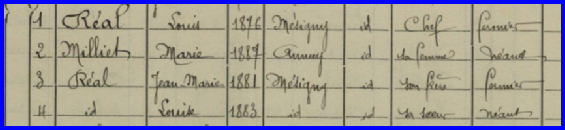 1 Réal Louis 1876 Mésigny id Chef fermier
2 Milliet Marie 1887 Annecy id sa femme néant
3 Réal Jean-Marie 1881 Mésigny id son frère fermier
4 id Louise 1883 id id sa soeur néant